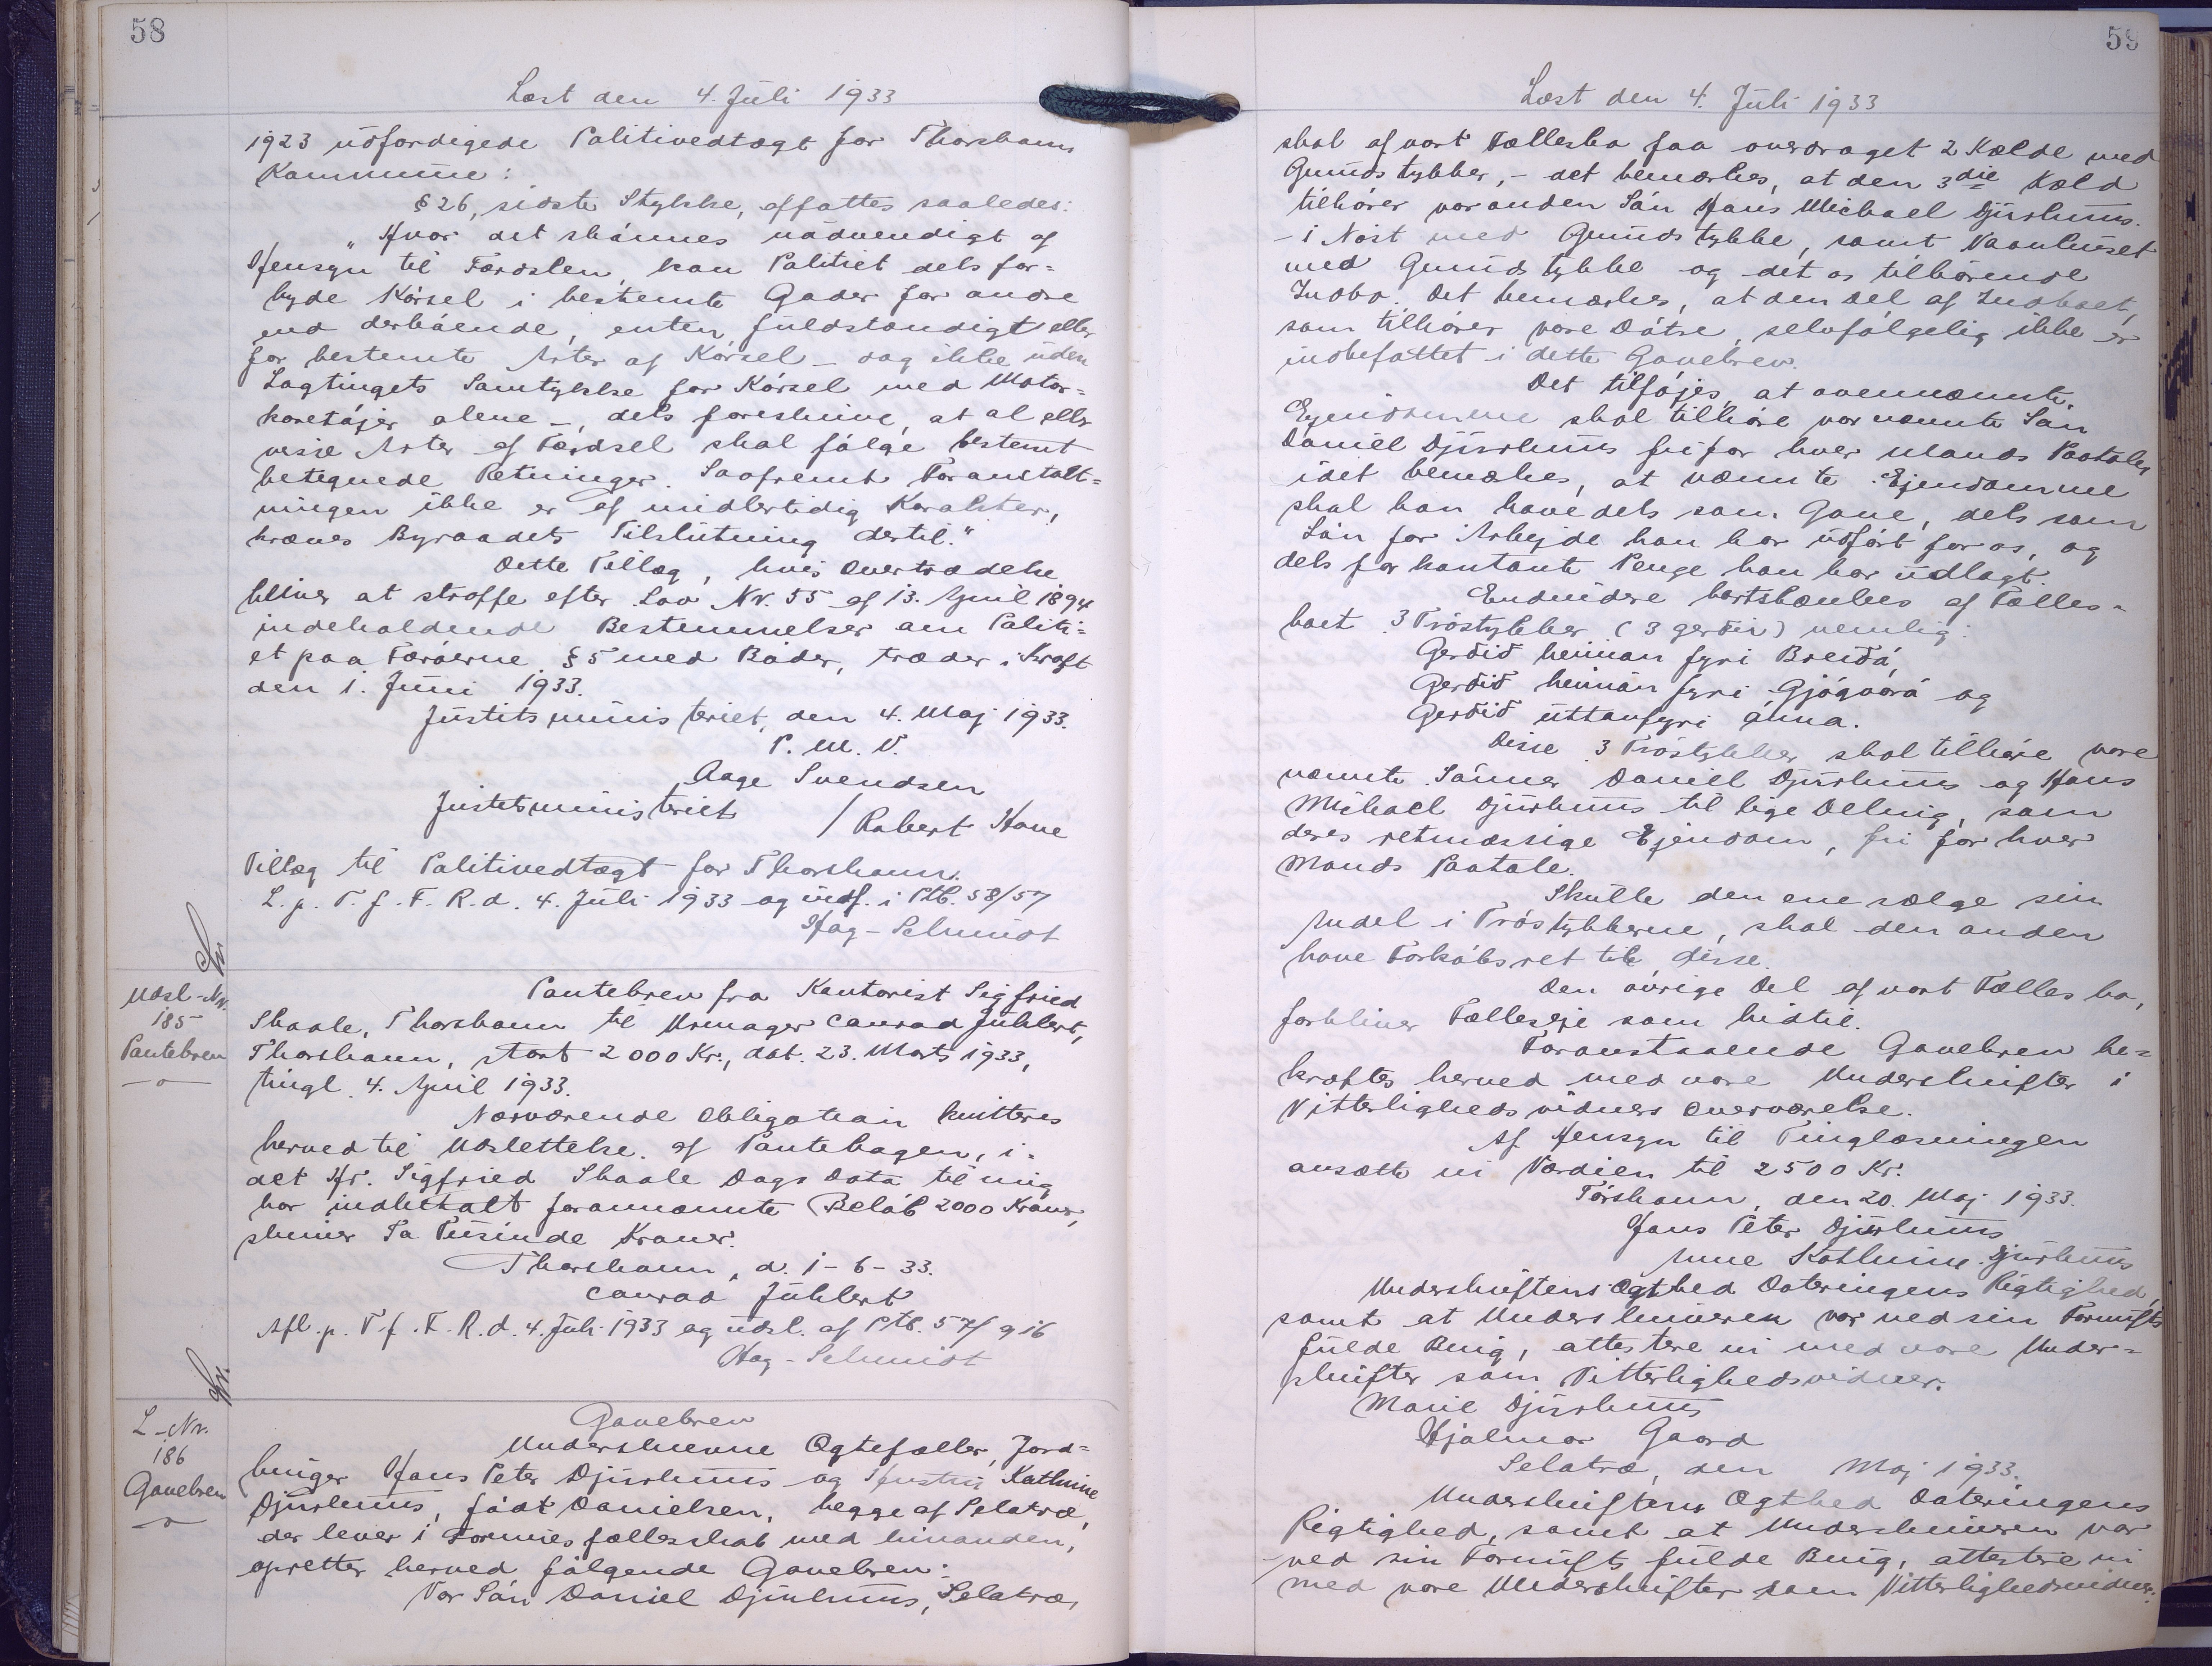 58
Læst den 4. Juli 1933
1923 udfærdigede Politivedtægt for Thorshavns
Kommune:
§ 26, sidste Stykke, affattes saaledes:
"Hvor det skønnes nødvendigt af
Hensyn til Færdslen, kan Politiet dels for=
byde Kørsel i bestemte Gader for andre
end derboende, enten fuldstændigt eller
for bestemte Arter af Kørsel - dog ikke uden
Lagtingets Samtykke for Kørsel med Motor=
køretøjer alene -, dels foreskrive, at al eller
visse Arter af Færdsel skal følge bestemt
betegnede Retninger. Saafremt Foranstalt=
ningen ikke er af midlertidig Karakter,
kræves Byraadets Tilslutning dertil."
Dette Tillæg, hvis Overtrædelse
bliver at straffe efter Lov Nr. 55 af 13. April 1894
indeholdende Bestemmelser om Politi=
et paa Færøerne § 5 med Bøder, træder i Kraft
den 1. Juni 1933.
Justitsministeriet, den 4. Maj 1933.
P. M. V.
Aage Svendsen
Justitsministeriet
/ Robert Have
Tillæg til Politivedtægt for Thorshavn.
L. p. T. f. F. R. d. 4. Juli 1933 og indf. i Ptb. 58/57
Hag-Schmidt
Udsl-Nr.
185
Pantebrev
Pantebrev fra Kontorist Sigfried
Skaale, Thorshavn til Urmager Conrad Juhlert,
Thorshavn, stort 2000 Kr., dat. 23. Marts 1933,
tingl. 4. April 1933.
Nærværende Obligation kvitteres
herved til Udslettelse af Pantebogen, i=
det Hr. Sigfried Skaale Dags Dato til mig
har indbetalt forannævnte Beløb 2000 Kroner,
skriver To Tusinde Kroner.
Thorshavn, d. 1-6-33.
Conrad Juhlert
Afl. p. T. f. F. R. d. 4. Juli 1933 og udsl. af Ptb. 57/916
Hag-Schmidt
L-Nr.
186
Gavebrev
Gavebrev
Underskrevne Ægtefæller, Jord=
bruger Hans Peter Djurhuus og Hustru Kathrine
Djurhuus, født Danielsen, begge af Selatræ,
der lever i Formuesfællesskab med hinanden,
opretter herved følgende Gavebrev:
Vor Søn Daniel Djurhuus, Selatræ,
59
Læst den 4. Juli 1933
skal af vort Fællesbo faa overdraget 2 Kælde med
Grundstykker, - det bemærkes, at den 3die Kæld
tilhører vor anden Søn Hans Michael Djurhuus.
- i Nøst med Grundstykke, samt Vaanhuset
med Grundstykke og det os tilhørende
Indbo. Det bemærkes, at den Del af Indboet,
som tilhører vore Døtre, selvfølgelig ikke er
indbefattet i dette Gavebrev.
Det tilføjes, at ovennævnte
Ejendomme skal tilhøre vor nævnte Søn
Daniel Djurhuus fri for hver Mands Paatale,
idet bemærkes, at nævnte Ejendomme
skal han have dels som Gave, dels som
Løn for Arbejde han har udført for os, og
dels for kontante Penge han har udlagt.
Endvidere bortskænkes af Fælles=
boet 3 Trøstykker (3 gerðir) nemlig:
Gerðið heiman fyri Breiðá,
Gerðið heiman fyri Gjógvará og
Gerðið uttanfyri ánna.
Disse 3 Trøstykker skal tilhøre vore
nævnte Sønner Daniel Djurhuus og Hans
Michael Djurhuus til lige Deling, som
deres retmæssige Ejendom, fri for hver
Mands Paatale.
Skulle den ene sælge sin
Andel i Trøstykkerne, skal den anden
have Forkøbsret til disse.
Den øvrige Del af vort Fællesbo,
forbliver Fælleseje som hidtil.
Foranstaaende Gavebrev be=
kræftes herved med vore Underskrifter i
Vitterlighedsvidners Overværelse.
Af Hensyn til Tinglæsningen
ansætte vi Værdien til 2500 Kr.
Tórshavn, den 20. Maj 1933.
Hans Peter Djurhuus
Anne Kathrine Djurhuus
Underskriftens Ægthed Dateringens Rigtighed,
samt at Underskriveren var ved sin Fornufts
fulde Brug, attestere vi med vore Under=
skrifter som Vitterlighedsvidner.
Marie Djurhuus
Hjalmar Gaard
Selatræ, den Maj 1933.
Underskriftens Ægthed Dateringens
Rigtighed, samt at Underskriveren var
ved sin Fornufts fulde Brug, attestere vi
med vore Underskrifter som Vitterlighedsvidner.